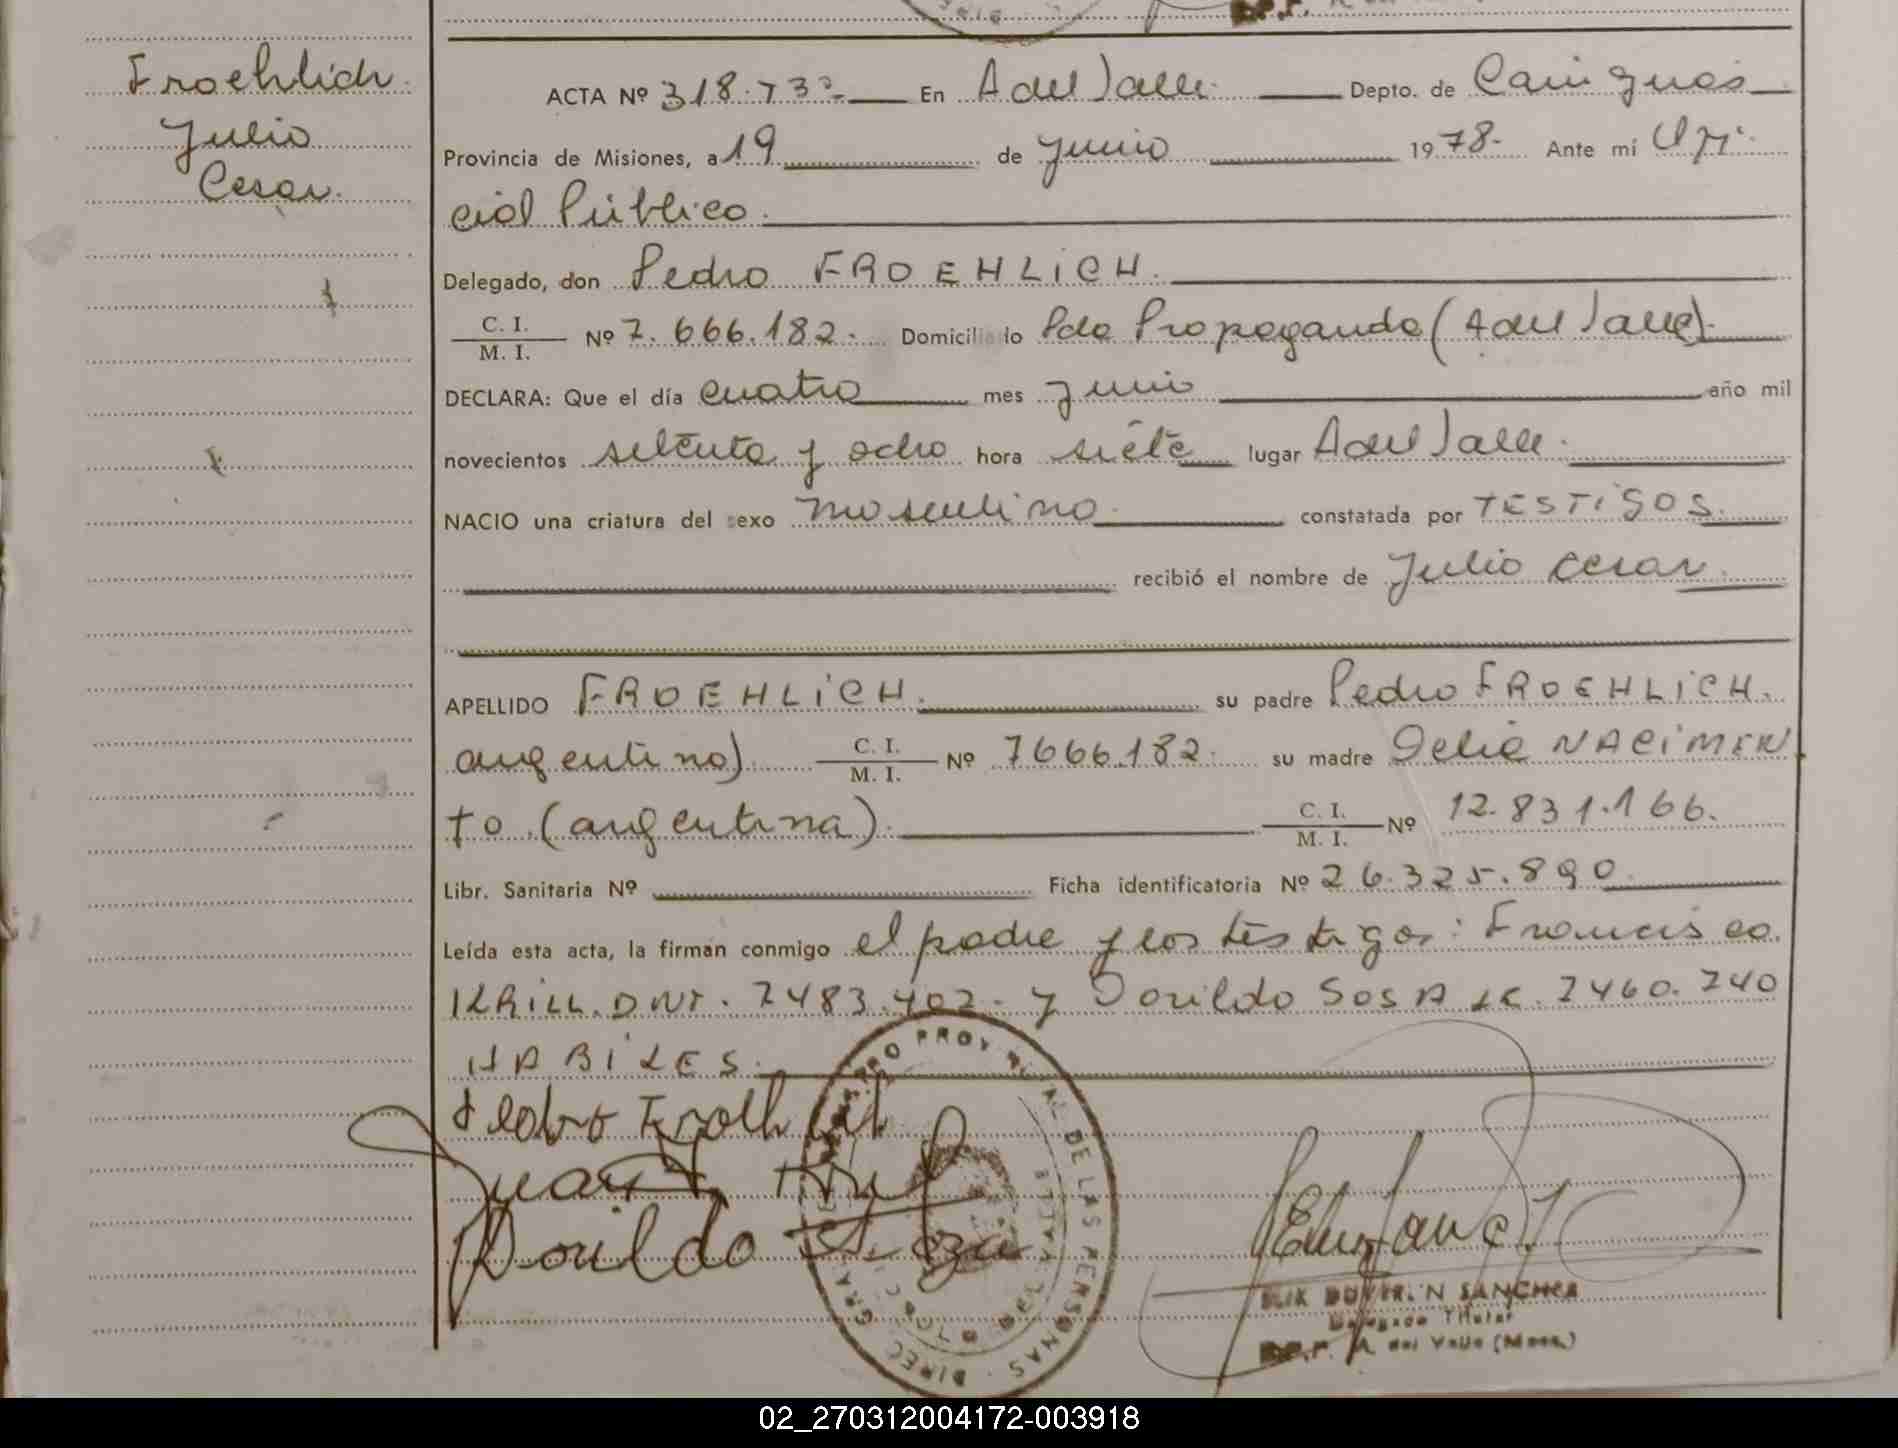 Froehlich
Julio
Cesar.
ACTA Nº 318.T 3º En A del Valle. Depto. de Cainguas
Provincia de Misiones, a 19 de junio 1978- Ante mí Ofi
cial Público.
Delegado, don Pedro FROEHLICH.
C. I.
M. I. Nº 7.666.182. Domiciliado Pdo Propaganda (A del Valle).
DECLARA: Que el día cuatro mes junio año mil
novecientos setenta y ocho hora siete lugar A del Valle.
NACIO una criatura del sexo masculino. constatada por TESTIGOS.
recibió el nombre de Julio Cesar.
APELLIDO FROEHLICH. su padre Pedro FROEHLICH.
argentino) C. I.
M. I. Nº 7666.182. su madre Delia NACIMEN
to (argentina). C. I.
M. I. Nº 12.831.166.
Libr. Sanitaria Nº Ficha identificatoria Nº 26.325.890.
Leída esta acta, la firman conmigo el padre y los testigos: Francisco
KRILL. DNI. 7483.402. y Dorildo SOSA LE. 7460.740
HABILES.
Pedro Froehlich
Dorildo Soza
REGISTRO PROVINCIAL DE LAS PERSONAS · DIREC. GRAL.
SANCHEZ
Delegado Titular
A. del Valle (Mnes.)
02_270312004172-003918